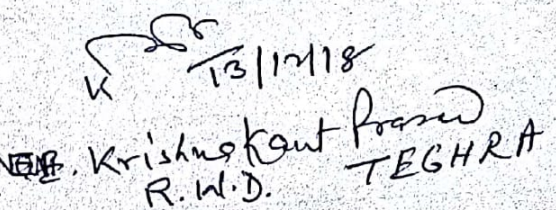 K
13/12/18
Krishna Kant Prasad
R.W.D. TEGHRA